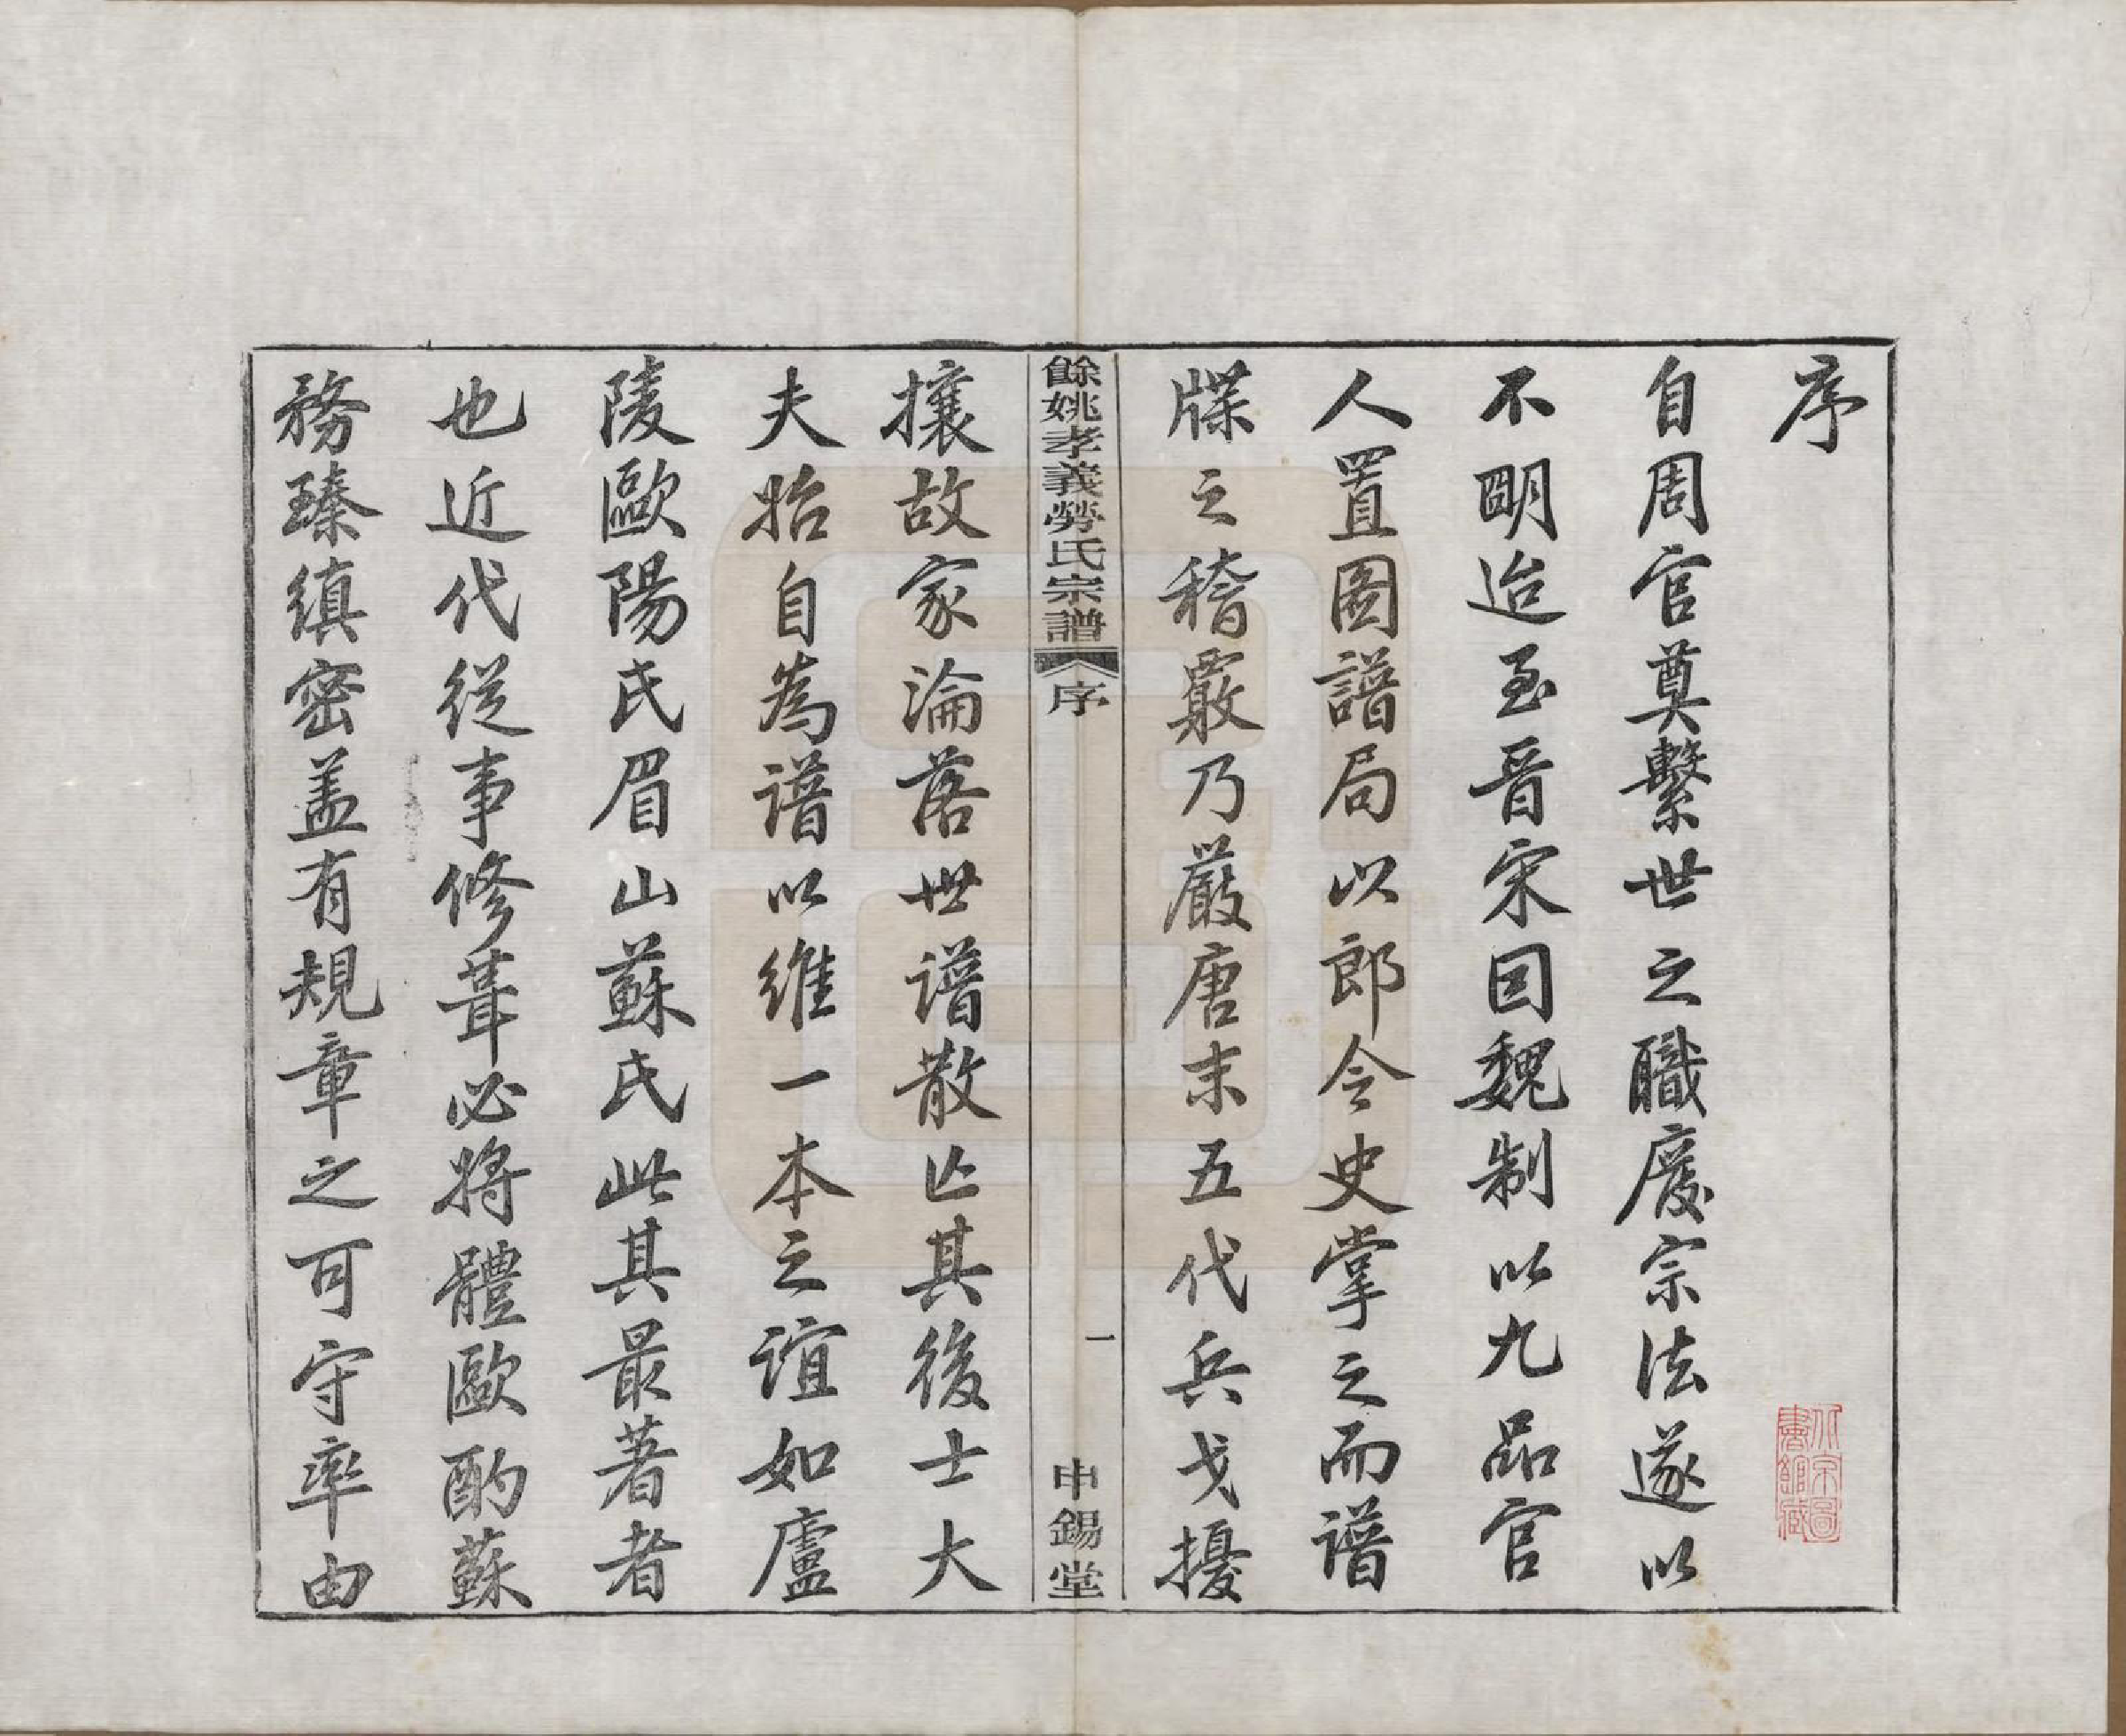 序
自周官奠繫世之職廢宗法遂以
不明迨至晉宋因魏制以九品官
人置圖譜局以郎令史掌之而譜
牒之稽覈乃嚴唐末五代兵戈擾
餘姚孝義勞氏宗譜
序
一
申錫堂
攘故家淪落世譜散亾其後士大
夫始自為譜以維一本之誼如廬
陵歐陽氏眉山蘇氏此其最著者
也近代從事修葺必將體歐酌蘇
務臻縝密盖有規章之可守率由
北京圖
書館藏